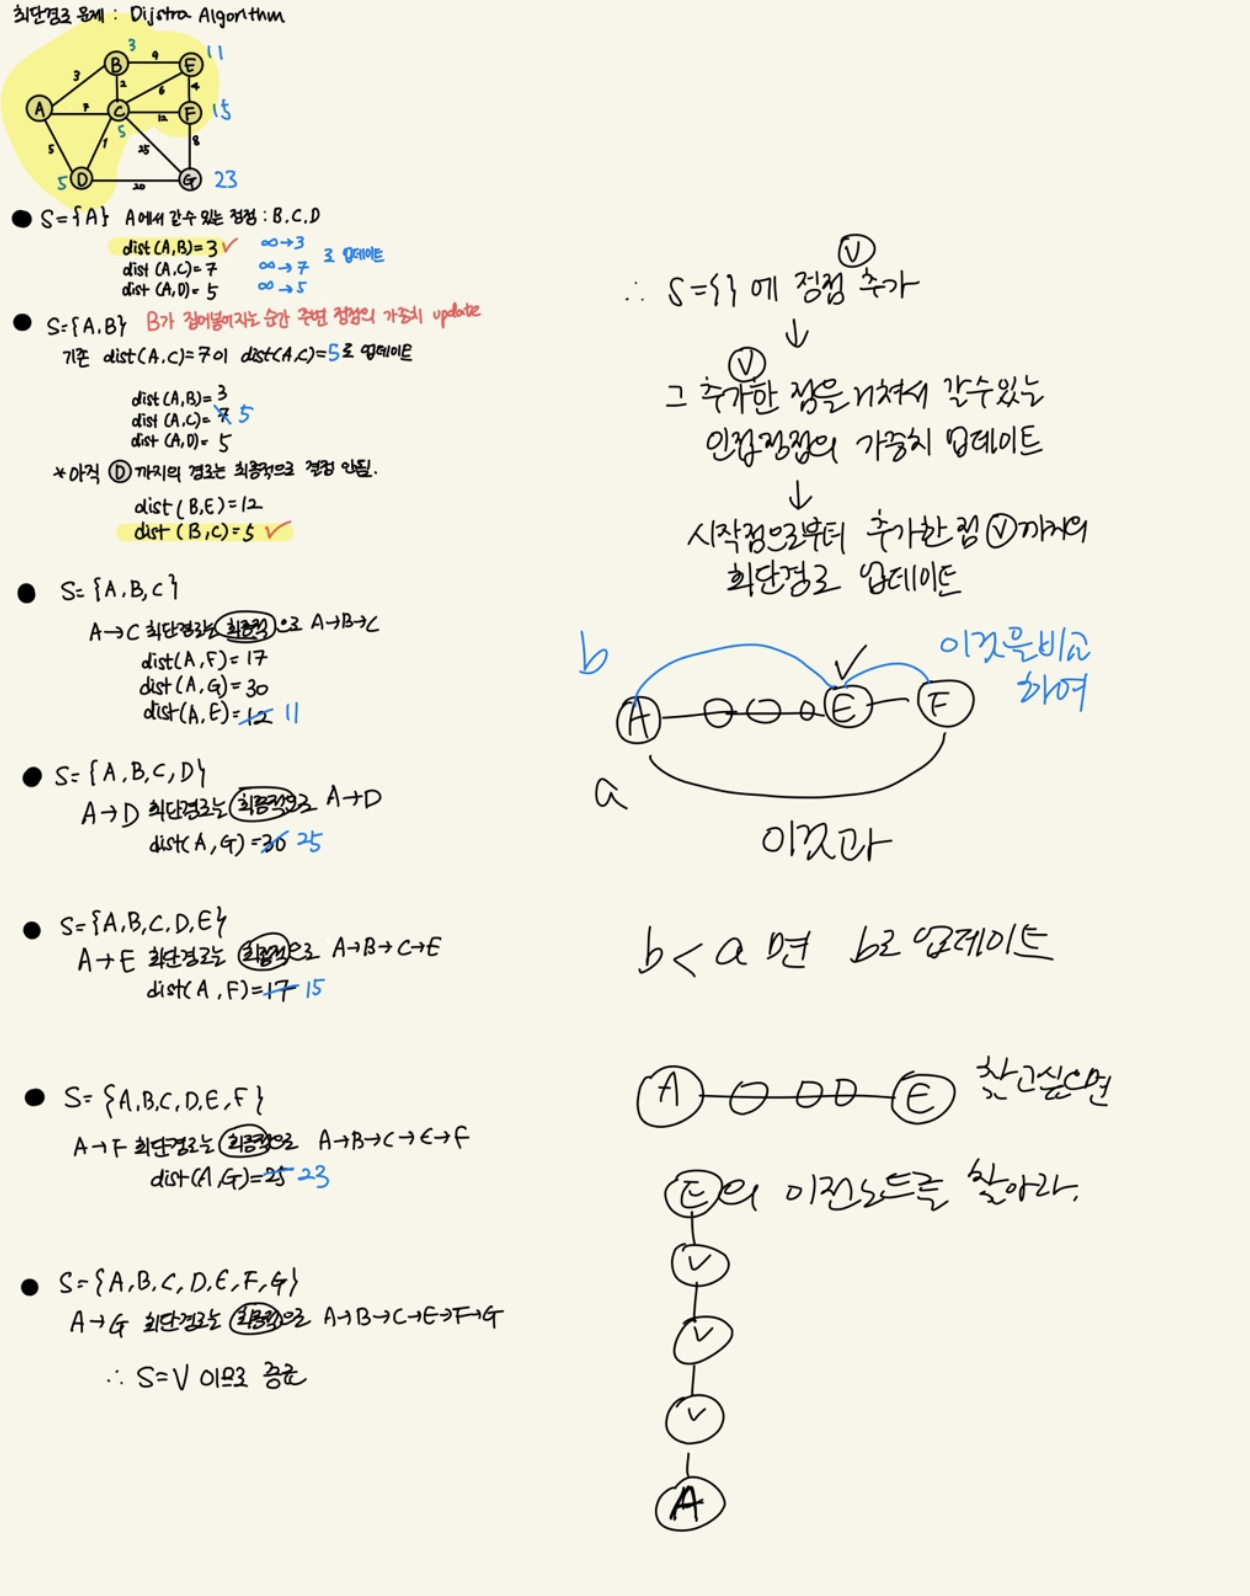 최단경로 문제 : Dijstra Algorithm
3
B
9
E
11
3
2
6
4
A
7
C
12
F
15
5
5
1
25
8
5
D
20
G
23
S={A} A에서 갈수 있는 정점 : B.C.D
dist(A,B)=3 ✓ ∞→3
dist (A,C)=7 ∞→7 로 업데이트
dist (A,D)= 5 ∞→5
S={A,B} B가 집어넣어지는 순간 주변 정점의 가중치 update
기존 dist(A.C)=7이 dist(A.C)=5로 업데이트
dist(A,B)=3
dist(A,C)=7 5
dist (A,D)= 5
*아직 D까지의 경로는 최종적으로 결정 안됨.
dist(B,E)=12
dist (B,C)=5 ✓
S= {A,B,C}
A→C 최단경로는 최종적으로 A→B→C
dist(A,F)= 17
dist(A,G)=30
dist(A,E)=12 11
S= {A,B,C,D}
A→D 최단경로는 최종적으로 A→D
dist(A,G)=30 25
S={A,B,C,D,E}
A→E 최단경로는 최종적으로 A→B→C→E
dist(A,F)=17 15
S= {A,B,C,D,E,F}
A→F 최단경로는 최종적으로 A→B→C→E→F
dist(A,G)=25 23
S={A,B,C,D,E,F,G}
A→G 최단경로는 최종적으로 A→B→C→E→F→G
∴ S=V 이므로 종료
V
∴ S={ } 에 정점 추가
↓
V
그 추가한 점을 거쳐서 갈수있는
인접정점의 가중치 업데이트
↓
시작점으로부터 추가한 점 V까지의
최단경로 업데이트
b
이것을비교
하여
A
E
F
a
이것과
b<a 면 b로 업데이트
A
E
찾고싶으면
E의 이전노드를 찾아라.
V
V
V
A